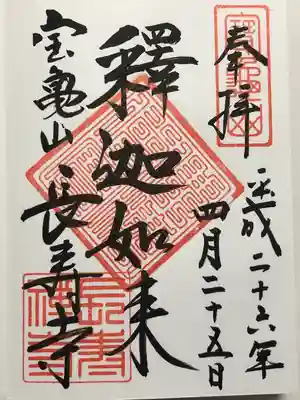 奉拝
平成二十六年
四月二十五日
釋迦如来
宝亀山
長寿寺